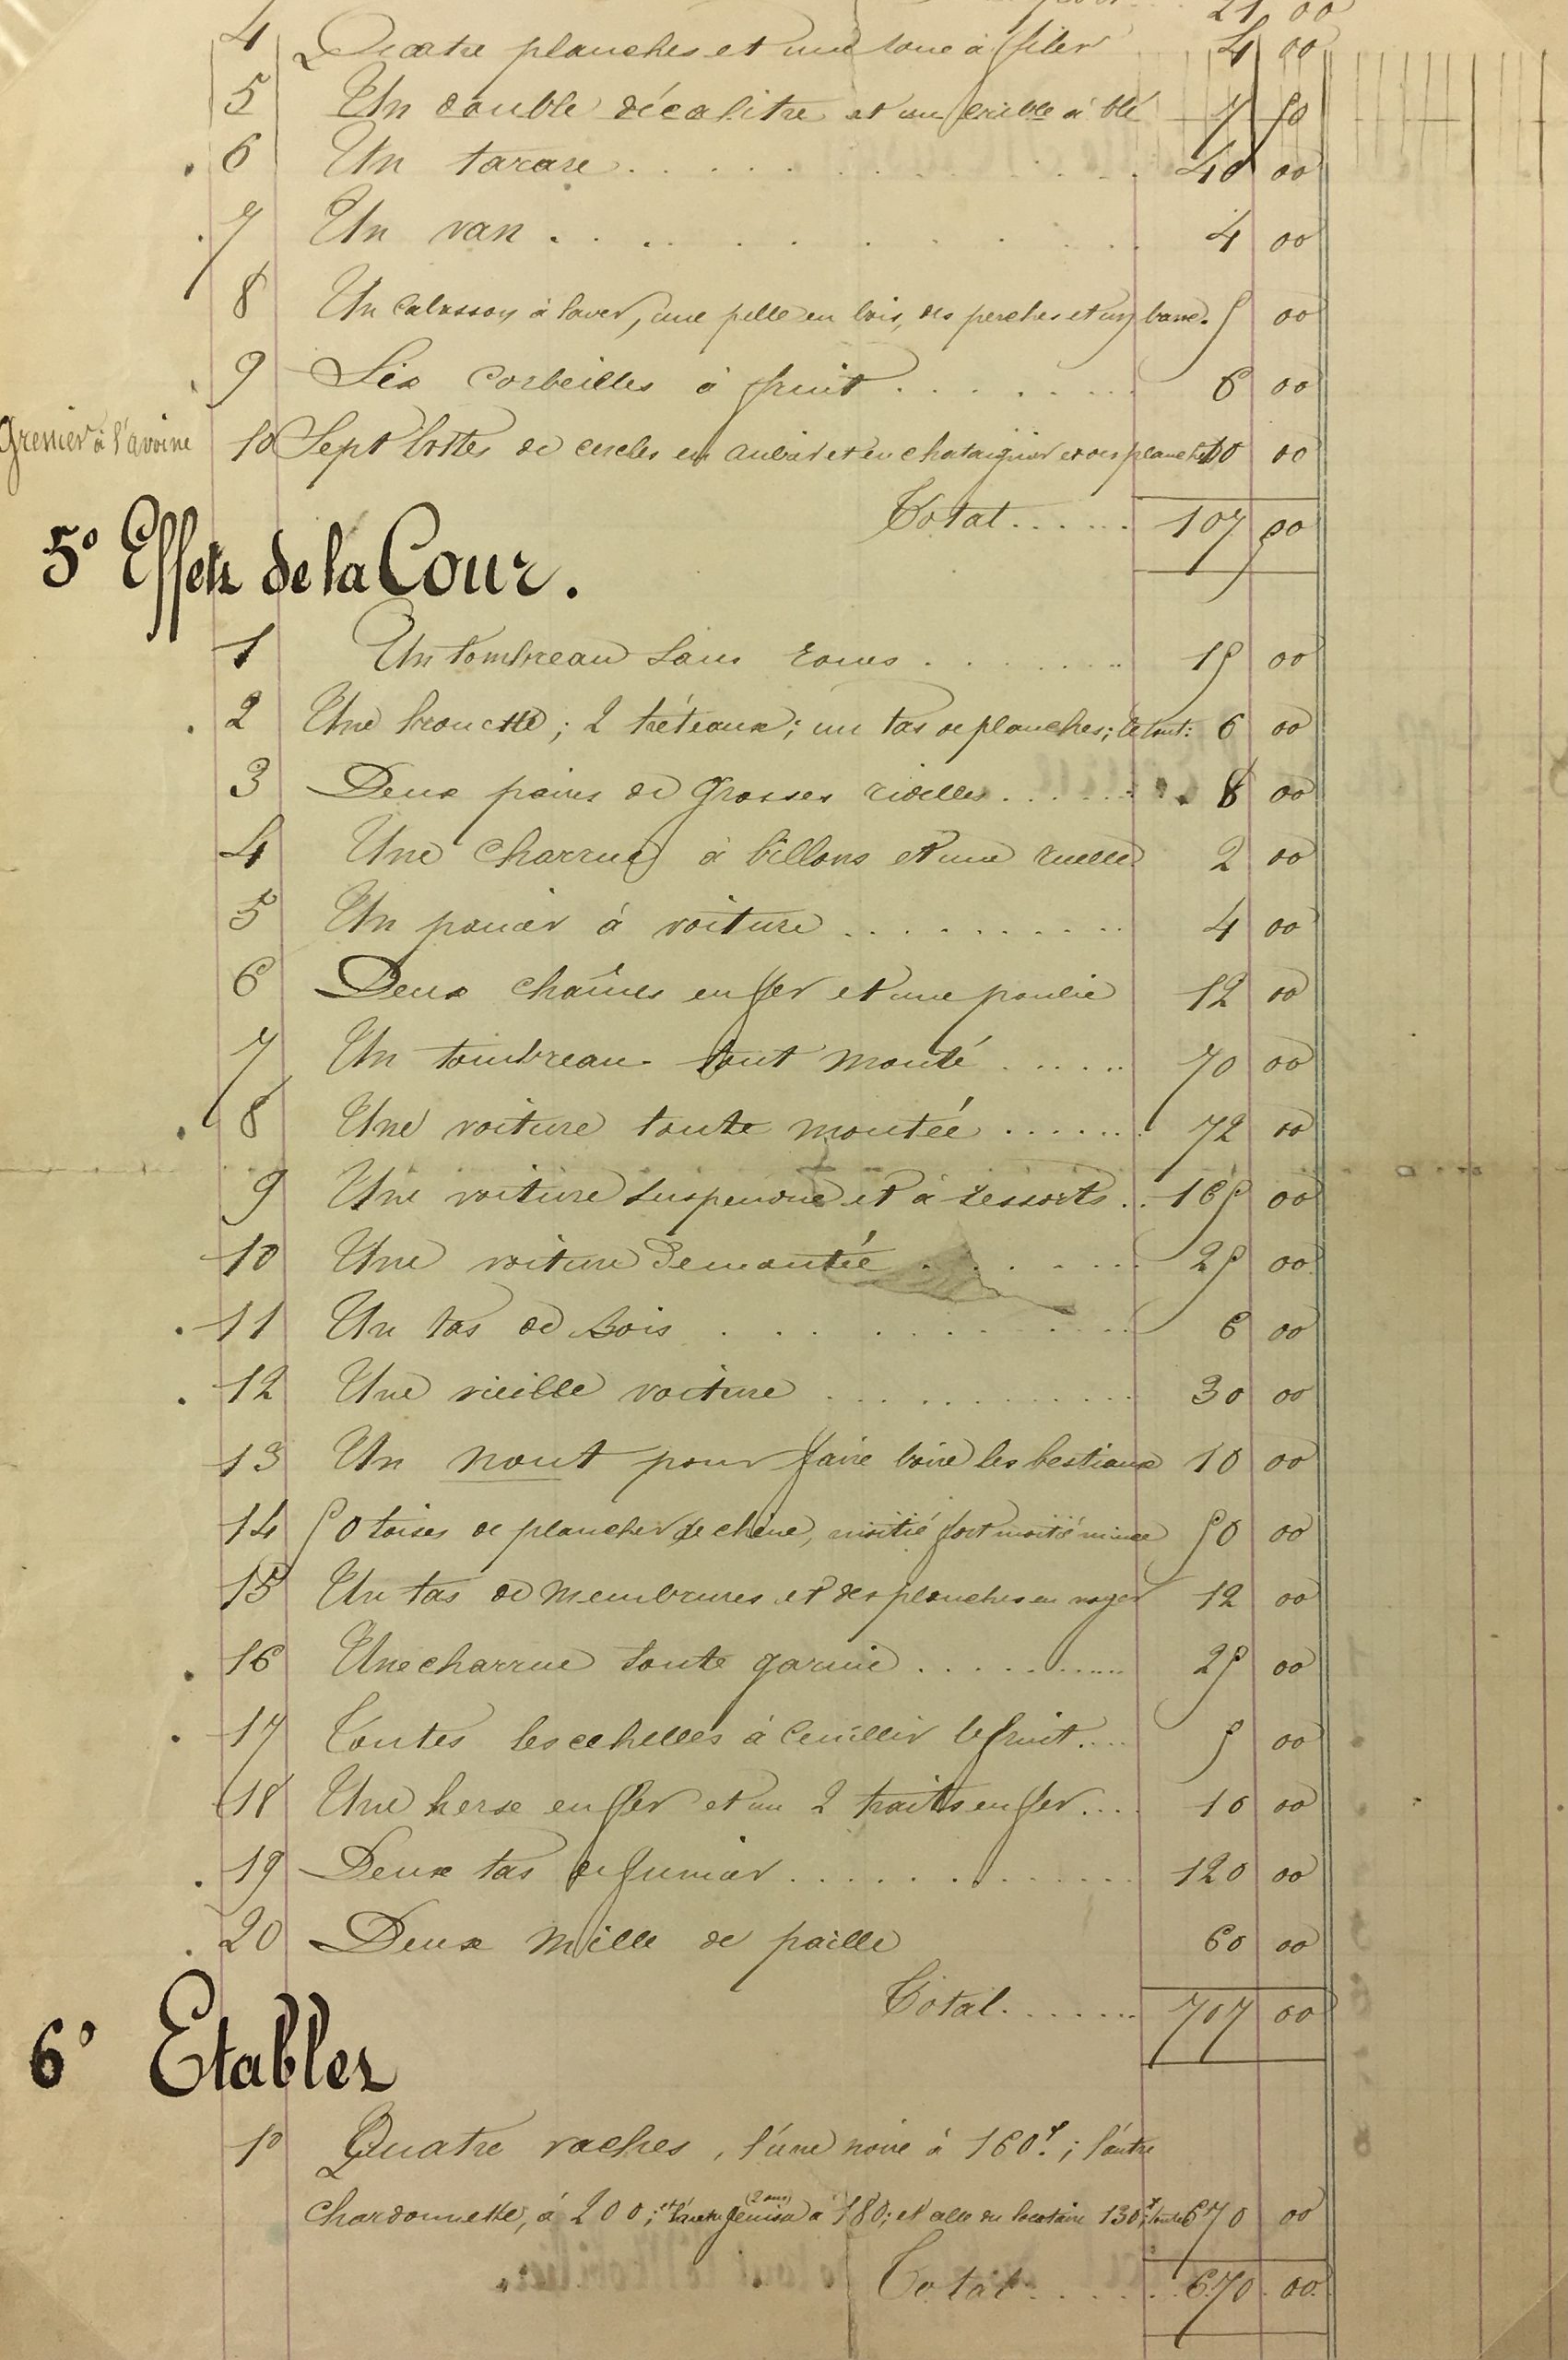 21 00
4 Quatre planches et une roue à filer 4 00
5 Un double décalitre et un crible à blé 7 50
6 Un tarare 40 00
7 Un van 4 00
8 Un calosson à laver, une pelle en bois, des perches et un banc. 5 00
9 Six corbeilles à fruit 6 00
Grenier à l'avoine
10 Sept bottes de cercles en aubier et en chataignier et des planches 10 00
Total 107 50
5º Effets de la Cour.
1 Un tombreau sans roues 15 00
2 Une brouette; 2 tréteaux; un tas de planches; le tout: 6 00
3 Deux paires de grosses ridelles 8 00
4 Une charrue à billons et une ruelle 2 00
5 Un panier à voiture 4 00
6 Deux chaînes en fer et une poulie 12 00
7 Un tombreau tout monté 70 00
8 Une voiture toute montée 72 00
9 Une voiture suspendue et à ressorts 165 00
10 Une voiture demontée 25 00
11 Un tas de Bois 6 00
12 Une vieille voiture 30 00
13 Un nout pour faire boire les bestiaux 10 00
14 50 toises de plancher de chêne, moitié fort moitié mince 50 00
15 Un tas de membrures et des planches en noyer 12 00
16 Une charrue toute garnie 25 00
17 Toutes les echelles à ceuillir le fruit 5 00
18 Une herse en fer et un 2 traits en fer 10 00
19 Deux tas de fumier 120 00
20 Deux mille de paille 60 00
Total 707 00
6º Etables
1º Quatre vaches, l'une noire à 160f.; l'autre
(2 ans)
chardonnette, à 200; et l'autre génisse à 180; et celle du locataire 130f; toutes 670 00
Total 670 00